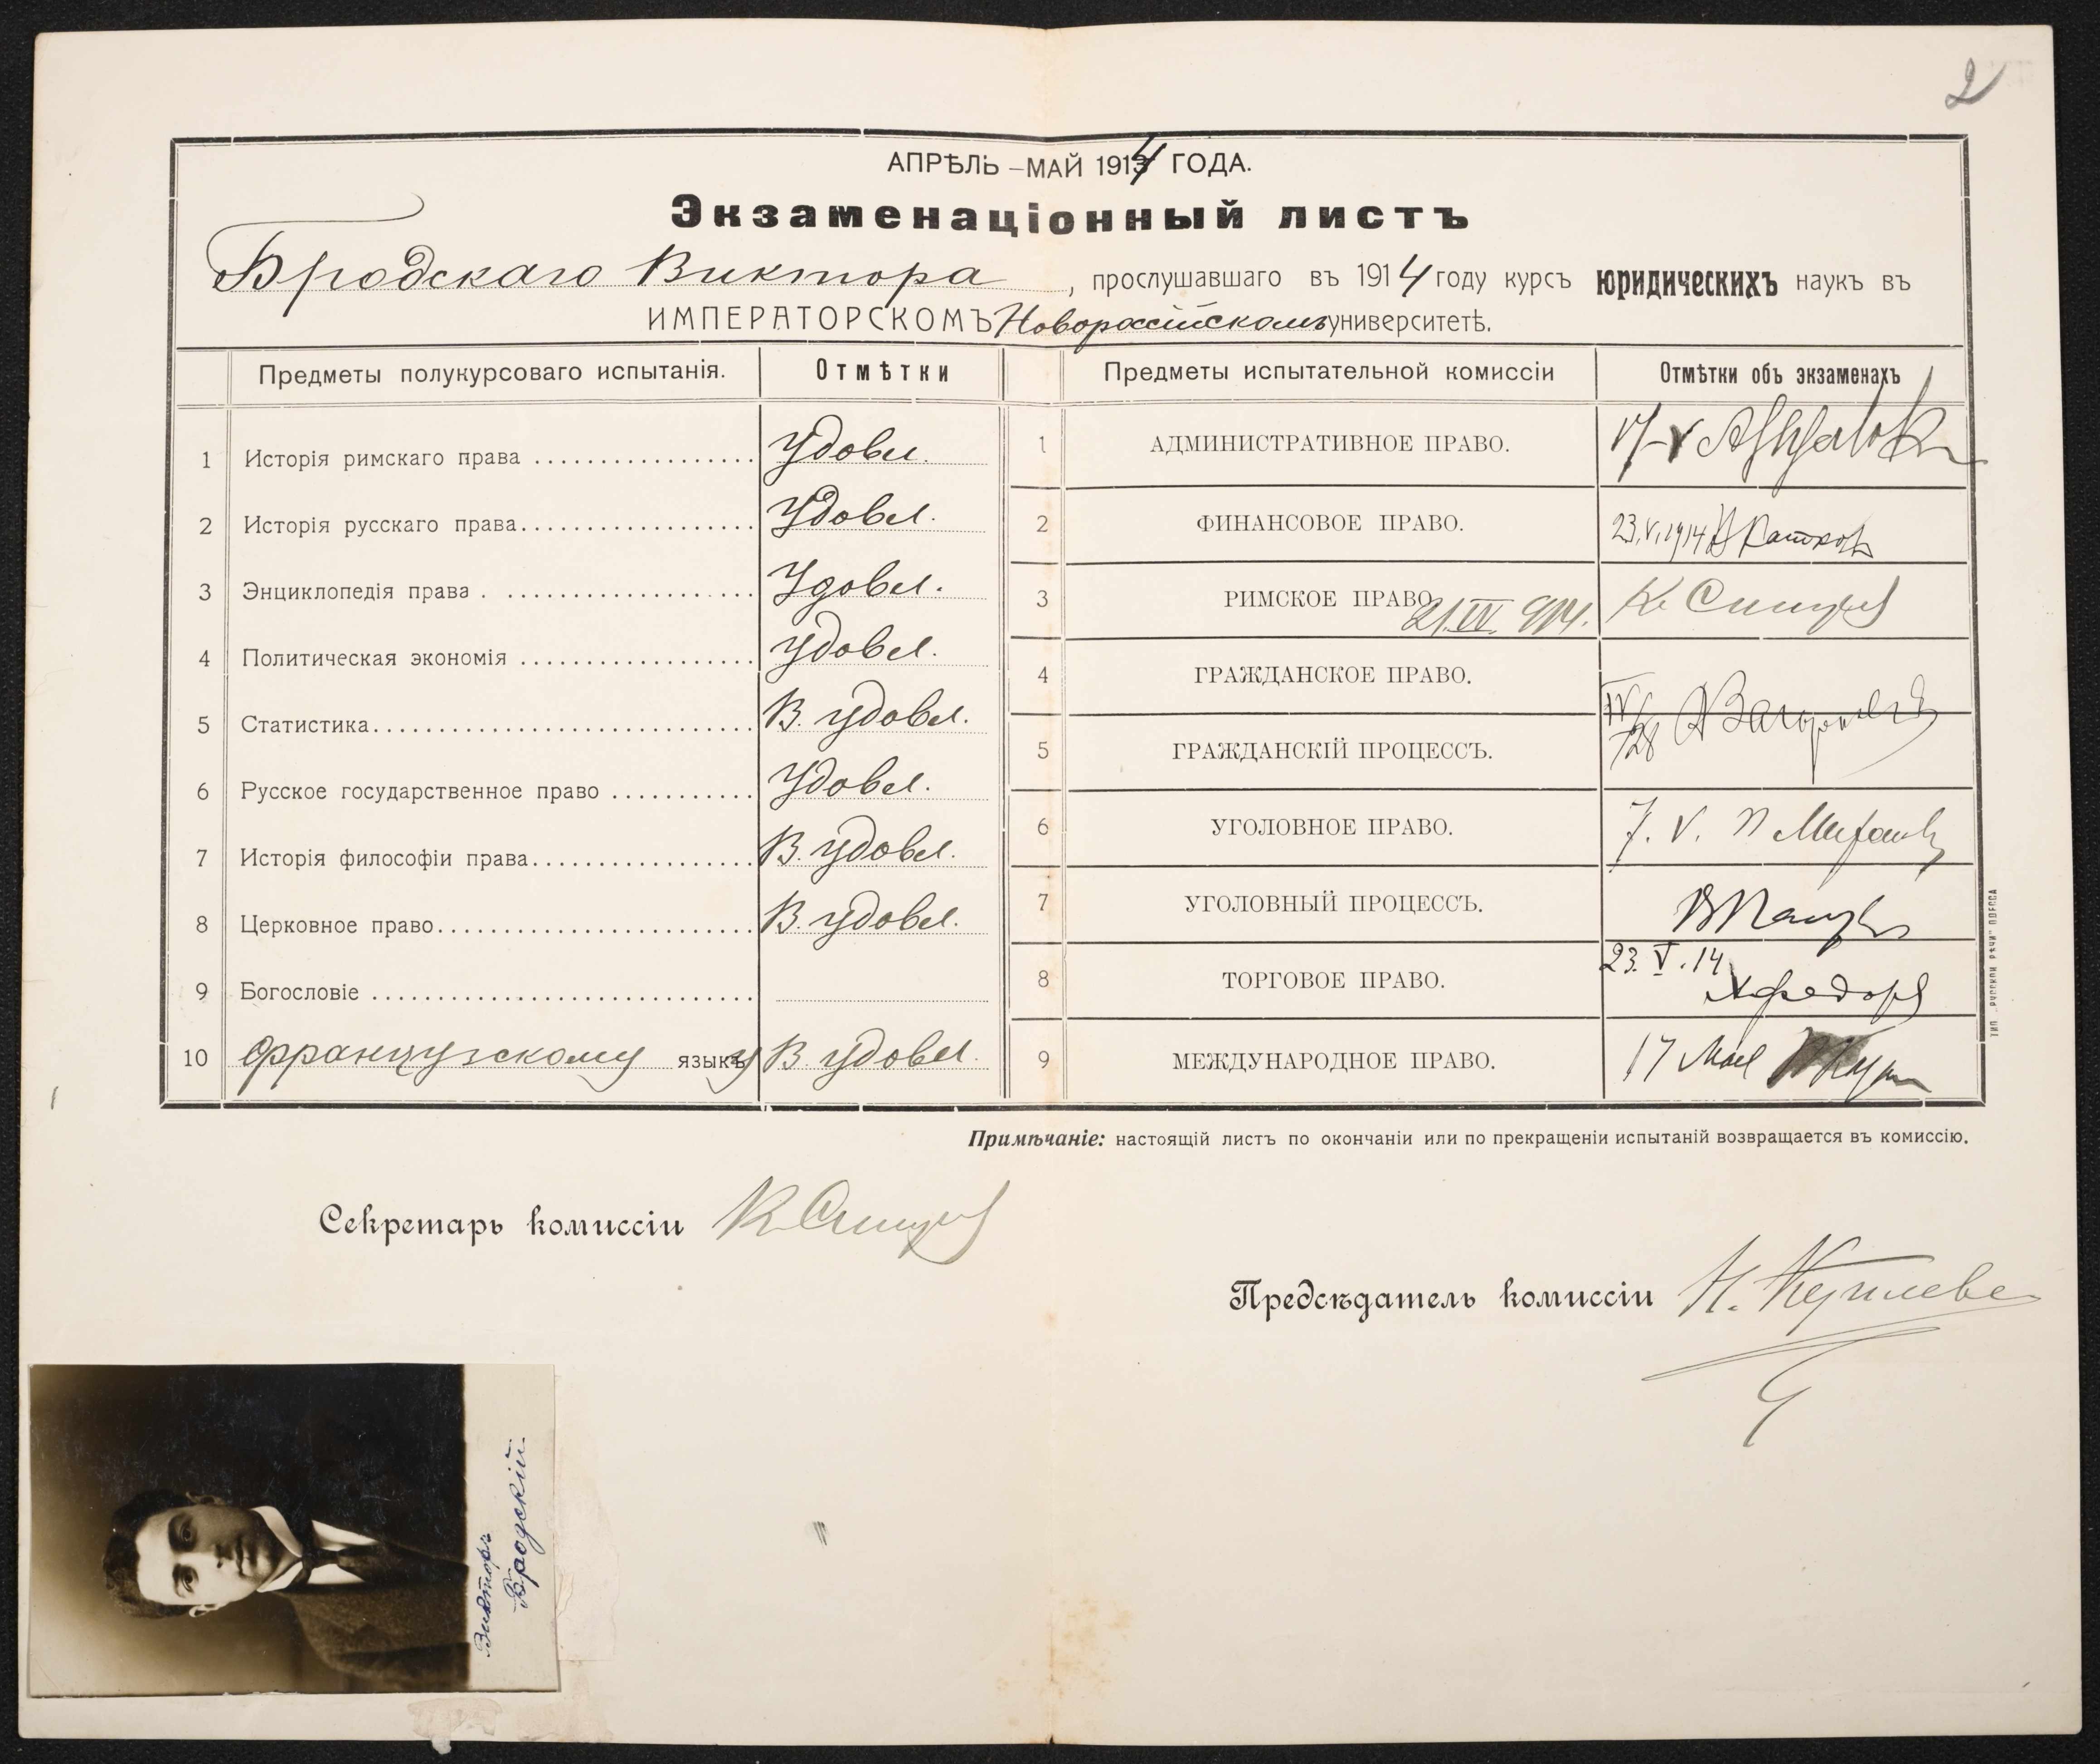 2
АПРѢЛЬ – МАЙ 1914 ГОДА.
Экзаменаціонный листъ
Бродскаго Виктора , прослушавшаго въ 1914 году курсъ юридическихъ наукъ въ
ИМПЕРАТОРСКОМЪ Новороссійскомъ университетѣ.
Предметы полукурсоваго испытанія. Отмѣтки
1 Исторія римскаго права удовл.
2 Исторія русскаго права удовл.
3 Энциклопедія права удовл.
4 Политическая экономія удовл.
5 Статистика В. удовл.
6 Русское государственное право удовл.
7 Исторія философіи права В. удовл.
8 Церковное право В. удовл.
9 Богословіе
10 французскому языку В. удовл.
Предметы испытательной комиссіи Отмѣтки объ экзаменахъ
1 АДМИНИСТРАТИВНОЕ ПРАВО.
2 ФИНАНСОВОЕ ПРАВО. 23.V.1914
3 РИМСКОЕ ПРАВО 21.IV.914.
4 ГРАЖДАНСКОЕ ПРАВО. IV/28
5 ГРАЖДАНСКІЙ ПРОЦЕССЪ.
6 УГОЛОВНОЕ ПРАВО. 7.V.
7 УГОЛОВНЫЙ ПРОЦЕССЪ.
8 ТОРГОВОЕ ПРАВО. 23.V.14
9 МЕЖДУНАРОДНОЕ ПРАВО. 17 Мая
ТИП. „РУССКОЙ РѢЧИ" ОДЕССА
Примѣчаніе: настоящій листъ по окончаніи или по прекращеніи испытаній возвращается въ комиссію.
Секретарь комиссіи
Предсѣдатель комиссіи
Викторъ
Бродскій.